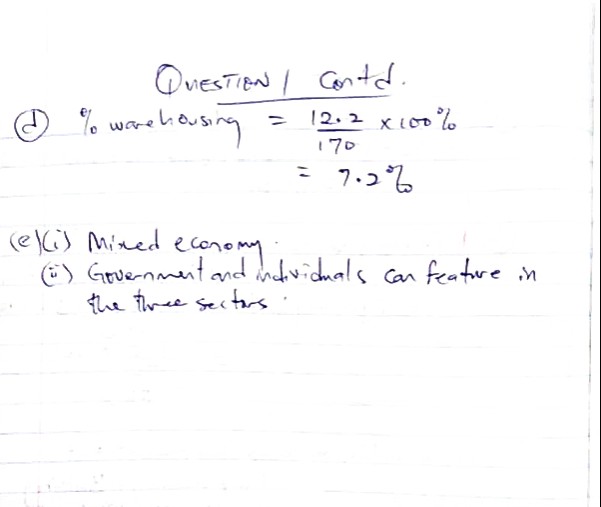 QUESTION 1 Contd.
(d) % warehousing = 12.2/170 x 100%
= 7.2%
(e)(i) Mixed economy.
(ii) Government and individuals can feature in
the three sectors.